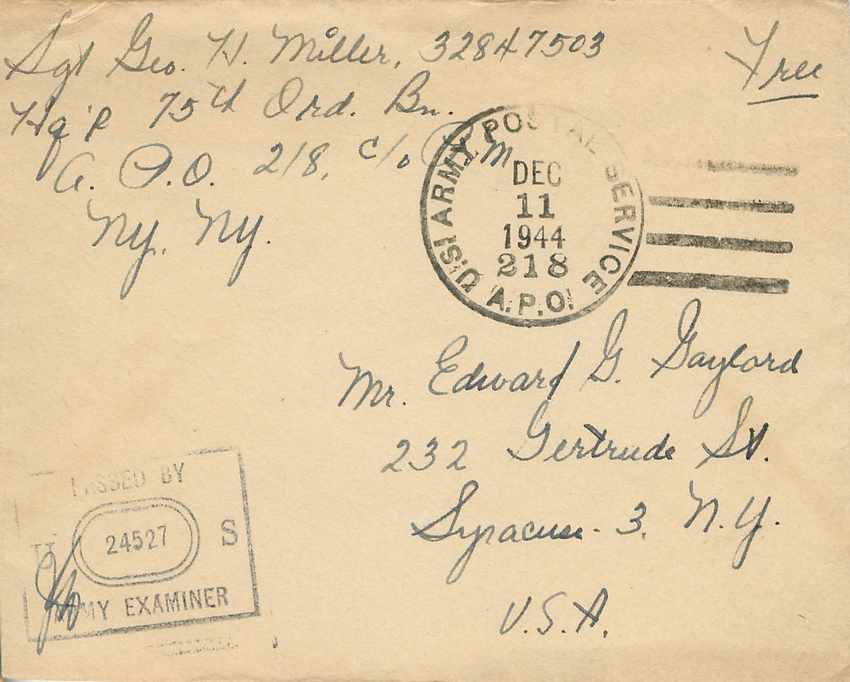 Sgt Geo. H. Miller, 32847503
Free
Hq 75th Ord. Bn.
A. P.O. 218, c/o P.M
Ny. Ny.
U.S. ARMY POSTAL SERVICE
A.P.O.
DEC
11
1944
218
Mr. Edward G. Gaylord
232 Gertrude St.
Syracuse - 3. N.Y.
U.S.A.
PASSED BY
U 24527 S
ARMY EXAMINER